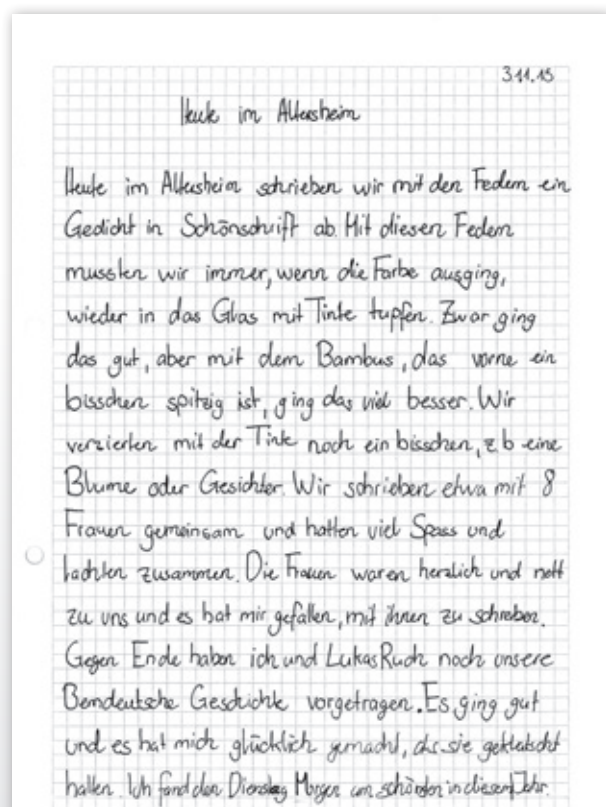 3.11.15
Heute im Altersheim
Heute im Altersheim schrieben wir mit den Federn ein
Gedicht in Schönschrift ab. Mit diesen Federn
mussten wir immer, wenn die Farbe ausging,
wieder in das Glas mit Tinte tupfen. Zwar ging
das gut, aber mit dem Bambus, das vorne ein
bisschen spitzig ist, ging das viel besser. Wir
verzierten mit der Tinte noch ein bisschen, z b eine
Blume oder Gesichter. Wir schrieben etwa mit 8
Frauen gemeinsam und hatten viel Spass und
lachten zusammen. Die Frauen waren herzlich und nett
zu uns und es hat mir gefallen, mit ihnen zu schreiben.
Gegen Ende haben ich und Lukas Ruch noch unsere
Berndeutsche Geschichte vorgetragen. Es ging gut
und es hat mich glücklich gemacht, als sie geklatscht
hatten. Ich fand den Dienstag Morgen am schönsten in diesem Jahr.